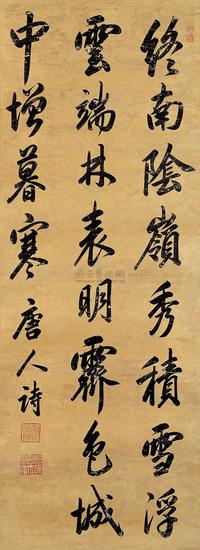 終南陰嶺秀積雪浮
雲端林表明霽色城
中增暮寒 唐人詩